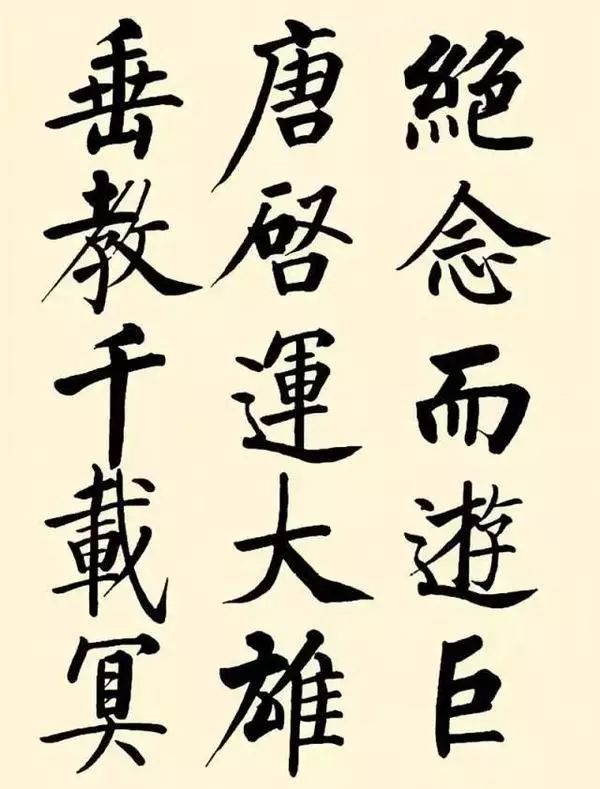 絶念而遊巨
唐啓運大雄
垂教千載冥